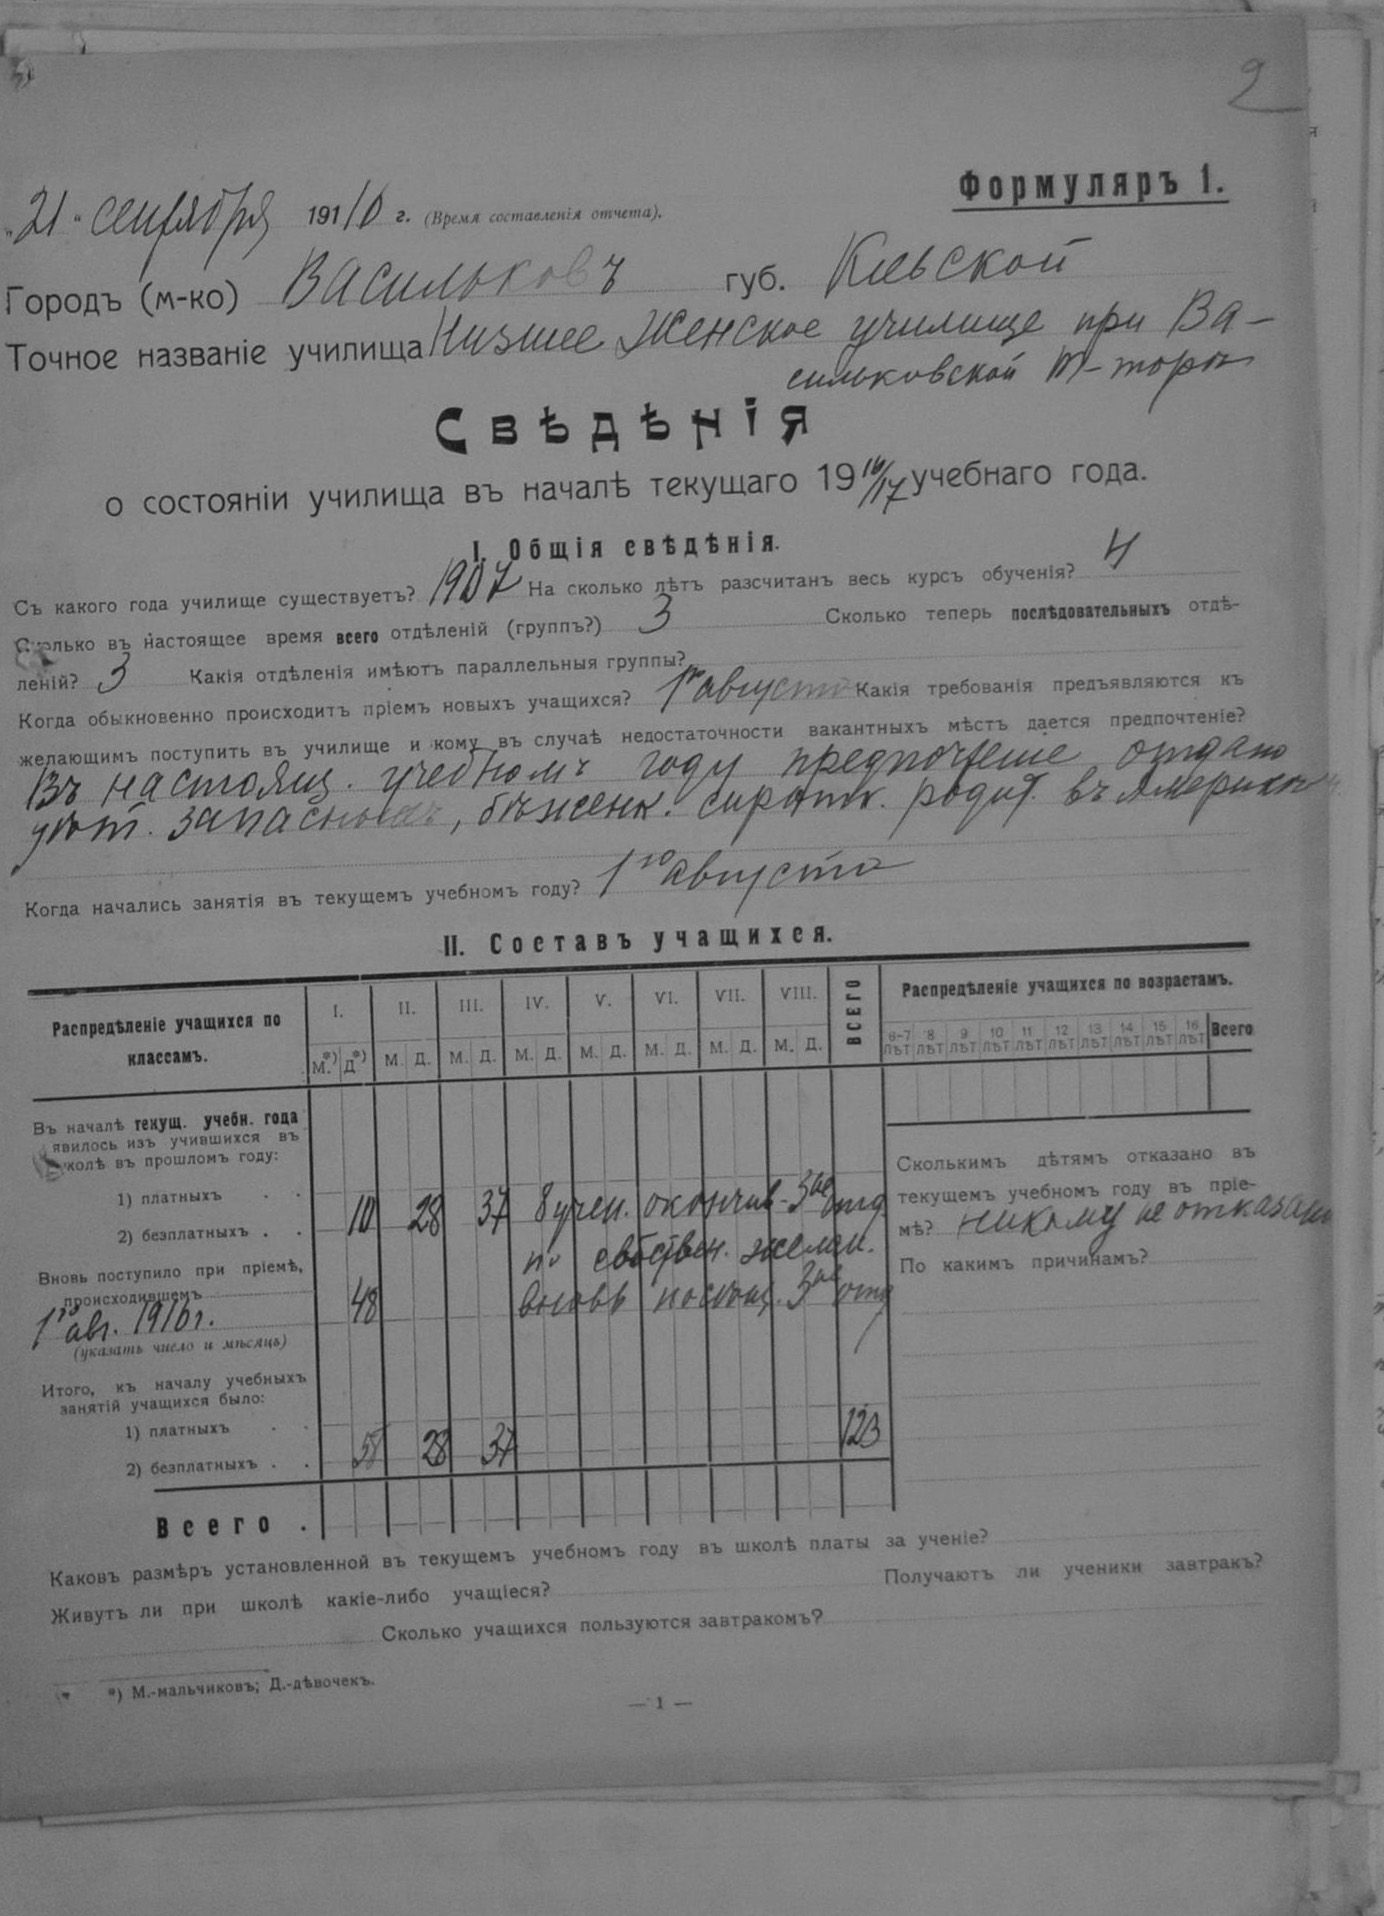 2
Формуляръ 1.
„21“ сентября 1916 г. (Время составленія отчета).
Городъ (м-ко) Васильковъ губ. Кіевской
Точное названіе училища Низшее Женское училище при Ва-
сильковской Т-торѣ
Свѣдѣнія
о состояніи училища въ началѣ текущаго 1916/17 учебнаго года.
I. Общія свѣдѣнія.
Съ какого года училище существуетъ? 1907 На сколько лѣтъ разсчитанъ весь курсъ обученія? 4
Сколько въ настоящее время всего отдѣленій (группъ?) 3 Сколько теперь послѣдовательныхъ отдѣ-
леній? 3 Какія отдѣленія имѣютъ параллельныя группы?
Когда обыкновенно происходитъ пріемъ новыхъ учащихся? 1го августа Какія требованія предъявляются къ
желающимъ поступить въ училище и кому въ случаѣ недостаточности вакантныхъ мѣстъ дается предпочтеніе?
Въ настоящ. учебномъ году предпочтеніе отдано
дѣт. запасныхъ, бѣженк. сирот. родит. въ Америкѣ
Когда начались занятія въ текущемъ учебномъ году? 1го августа
II. Составъ учащихся.
Распредѣленіе учащихся по классамъ. I. II. III. IV. V. VI. VII. VIII. ВСЕГО Распредѣленіе учащихся по возрастамъ.
М.*) Д*) М. Д. М. Д. М. Д. М. Д. М. Д. М. Д. М. Д. 6-7 лѣт 8 лѣт 9 лѣт 10 лѣт 11 лѣт 12 лѣт 13 лѣт 14 лѣт 15 лѣт 16 лѣт Всего
Въ началѣ текущ. учебн. года
явилось изъ учившихся въ
школѣ въ прошломъ году:
1) платныхъ . .
2) безплатныхъ . . 10 28 37 8 учен. окончив. 3ье отд
по собствен. желан.
Вновь поступило при пріемѣ,
происходившемъ 48 вновь поступ. 3ье отд
1го авг. 1916 г.
(указать число и мѣсяцъ)
Итого, къ началу учебныхъ
занятій учащихся было:
1) платныхъ . .
2) безплатныхъ . . 58 28 37 123
Всего .
Сколькимъ дѣтямъ отказано въ
текущемъ учебномъ году въ пріе-
мѣ? никому не отказано
По какимъ причинамъ?
Каковъ размѣръ установленной въ текущемъ учебномъ году въ школѣ платы за ученіе?
Живутъ ли при школѣ какіе-либо учащіеся? Получаютъ ли ученики завтракъ?
Сколько учащихся пользуются завтракомъ?
*) М.-мальчиковъ; Д.-дѣвочекъ.
— 1 —